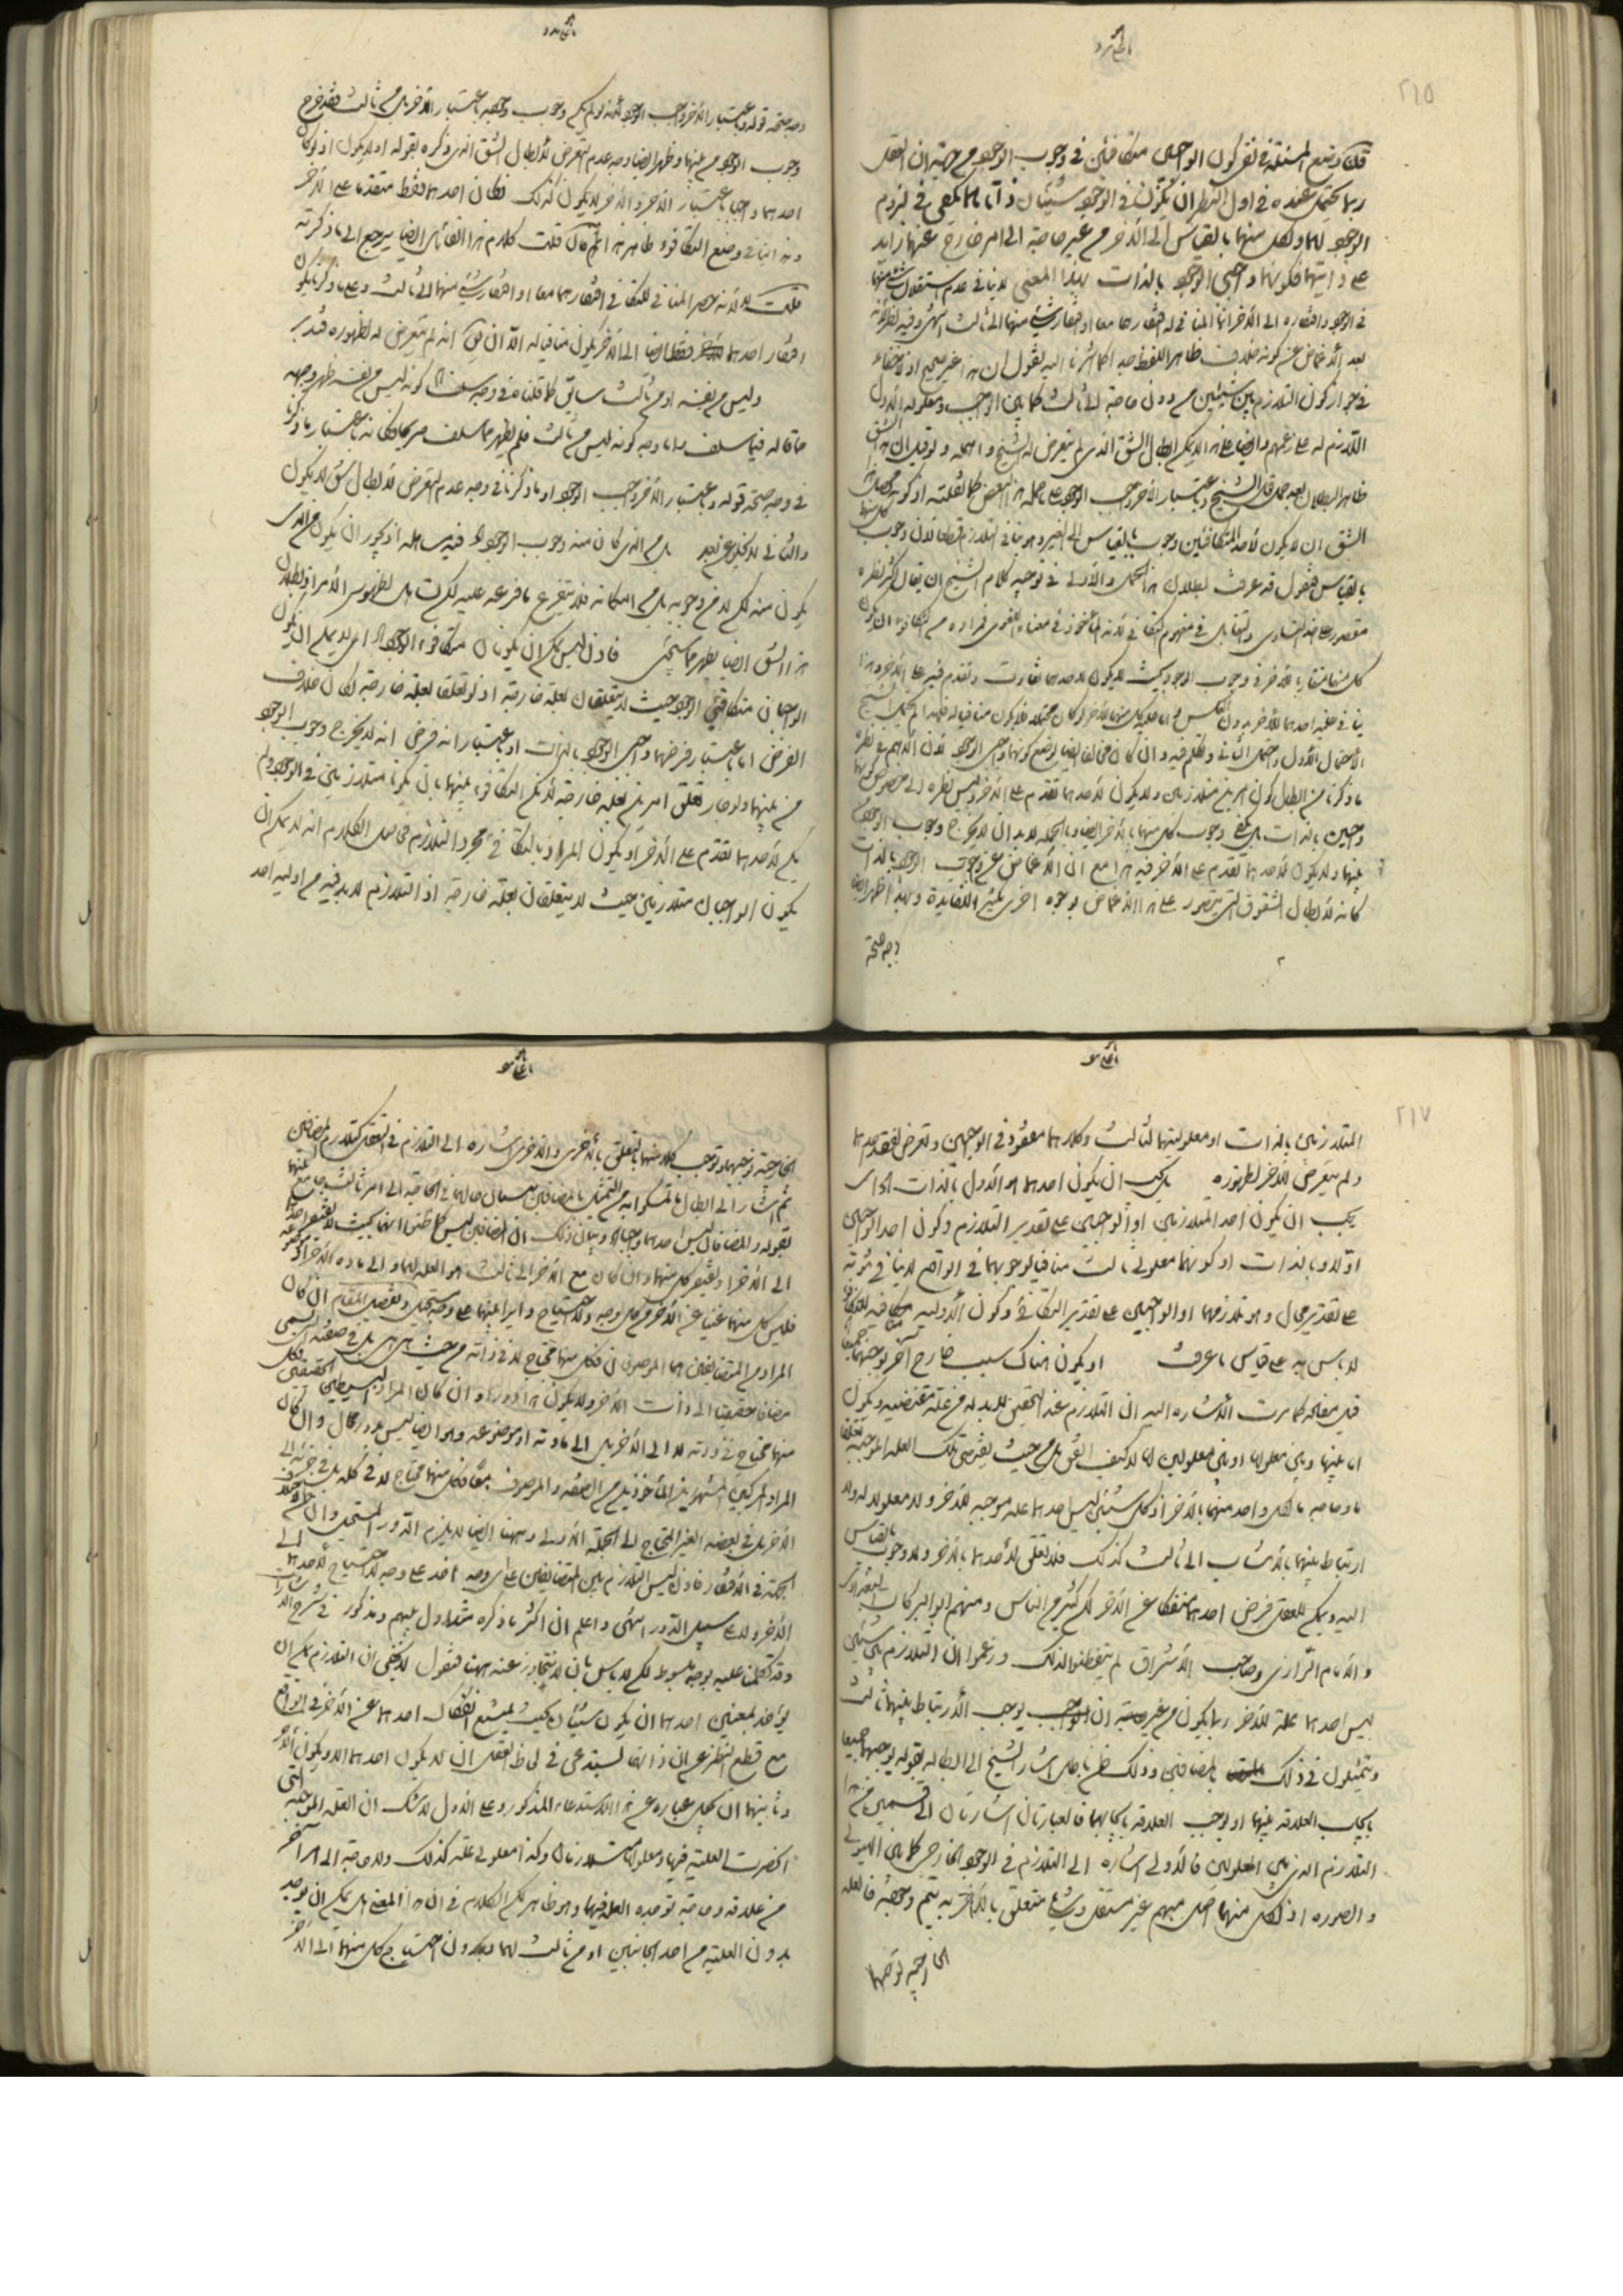 ٢١٥
قلت وضع المسئلة في نفس كون الواجبين متكافئين في وجوب الوجود من جهة ان العقل
ربما يحتمل عنده في اول النظر ان يكون في الوجود شيئان ذاتاهما تكفي في لزوم
الوجود لهما ولكل منهما بالقياس الى الآخر من غير حاجة الى امر خارج عنهما زايد
على ذاتيهما فكونهما واجبي الوجود بالذات بهذا المعنى لا ينافي عدم استقلال شئ منهما
في الوجود وافتقاره الى الآخر انما المنافي له افتقارهما معا او افتقار شئ منهما الى ثالث انتهى وفيه نظر لانه
بعد الاغماض عن كونه خلاف ظاهر اللفظ جدا كما اشرنا اليه نقول ان هذا غير صحيح اذ لا خفاء
في جواز كون التلازم بين شيئين من دون حاجة الى ثالث كما بين الواجب ومعلوله الاول
اللازم له على زعمهم وايضا على هذا لا يمكن ابطال الشق الذي لم يتعرض له الشيخ واهمله ولو قيل ان هذا الشق
ظاهر البطلان بعد حمل قول الشيخ وباعتبار الآخر واجب الوجود على ما حمله هذا البعض كما نقلته
الشق ان لا يكون لاحد المتكافئين وجوب بالقياس الى الغير وهو ينافي التلازم قطعا لان وجوب كل منهما
بالقياس فنقول قد عرفت بطلان هذا الحمل والاولى في توجيه كلام الشيخ ان يقال اكثر نظره
مقصور على اخذ التساوي والتقابل في مفهوم التكافي لانه المأخوذ في معناه اللغوي فمراده من التكافؤ ان يكون
كل منهما مقارنا للآخر في وجوب الوجود بحيث لا يكون لاحدهما تفاوت وتقدم فيه على الآخر وهذا
ينافي علية احدهما للآخر بدون العكس واما علية كل منهما للآخر لو كان محتملا فلا يكون منافيا له فلهذا لم يحتمل الشيخ
الاحتمال الاول واحتمل الثاني وتكلم فيه وان كان مخالفا ايضا لوضع كونهما واجبي الوجود لان الاهم في نظره
ما ذكرنا من ابطال كون امرين متلازمين ولا يكون لاحدهما تقدم على الآخر وليس نظره الى خصوص كونهما
واجبين بالذات بل يكفي وجوب كل منهما بالآخر ايضا وبالجملة لا بد ان لا يخرج وجوب الوجود
بينهما ولا يكون لاحدهما تقدم على الآخر فيه هذا مع ان الاغماض عن وجوب الوجود بالذات
كانه لابطال الشقوق التي يتصور على هذا الاغماض لوجوه اخرى تكثيرا للفايدة وبهذا ظهر ايضا
وجه صحة
وجه صحة قوله وباعتبار الآخر واجب الوجود لانه لو لم يكن وجوب وجوده باعتبار الآخر بل من ثالث فقد خرج
وجوب الوجود من بينهما وظهر ايضا وجه عدم التعرض لابطال الشق الذي ذكره بقوله او لا يكون اذ لو كان
احدهما واجبا باعتبار الآخر والآخر لا يكون كذلك فكان احدهما فقط متقدما على الآخر
وهذا ينافي وضع التكافؤ ظاهرا هذا ثم قال قلت كلام هذا القائل ايضا يرجع الى ما ذكرته
قلت لا لانه حصر المنافي للتكافي في افتقارهما معا او افتقار شئ منهما الى ثالث وعلى ما ذكرنا يكون
افتقار احدهما فقط ايضا الى الآخر يكون منافيا له الا ان يق انه لم يتعرض له لظهوره فتدبر
وليس من نفسه او من ثالث سابق كما قلناه في وجه سلف اما كونه ليس من نفسه ظهر وجهه
مما قاله فيما سلف واما وجه كونه ليس من ثالث فلم يظهر مما سلف صريحا وكانه باعتبار ما ذكرنا
في وجه صحة قوله وباعتبار الآخر واجب الوجود او ما ذكرنا في وجه عدم التعرض لابطال شق لا يكون
والثاني لا يخلو عن بعد بل من الذي كان منه وجوب الوجود اه فيه مساهلة اذ يجوز ان يكون من الذي
يكون منه لكن لا من وجوبه بل من امكانه فلا يتفرع ما فرعه عليه لكن تساهل لظهور الامر اذ بطلان
هذا الشق ايضا يظهر مما سيجئ فاذن ليس يمكن ان يكونا متكافئ الوجود اه اي لا يمكن ان يكون
الواجبان متكافئي الوجود حيث لا يتعلقان بعلة خارجة اذ لو تعلقا بعلة خارجة لكان خلاف
الفرض اما باعتبار فرضهما واجبي الوجود بالذات او باعتبار انه فرض انه لا يخرج وجوب الوجود
من بينهما ولو جاز تعلق امرين بعلة خارجة لامكن التكافؤ بينهما بان يكونا متلازمين في الوجود ولم
يكن لاحدهما تقدم على الآخر او يكون المراد بالتكافي مجرد التلازم فحاصل الكلام انه لا يمكن ان
يكون الواجبان متلازمين حيث لا يتعلقان بعلة خارجة اذ التلازم لا بد فيه من اولية احد
٢١٧
المتلازمين بالذات او معلوليتهما لثالث وكلاهما مفقود في الواجبين وتعرض لفقد احدهما
ولم يتعرض للآخر لظهوره بل يجب ان يكون احدهما هو الاول بالذات اه اي
يجب ان يكون احد المتلازمين او الواجبين على تقدير التلازم وكون احد الواجبين
اولا وبالذات او كونهما معلولي ثالث منافيا لوجوبهما في الواقع لا ينافي لزومه
على تقدير محال وهو تلازمهما او الواجبين على تقدير التكافئ وكون الاولية منافية للتكافؤ
لا باس به على قياس ما عرفت او يكون هناك سبب خارج آخر يوجبهما جميعا
قيل معناه كما مرت الاشارة اليه ان التلازم عند التحقيق لا بد له من علة مقتضية ويكون
اما بينها وبين معلولها او بين معلولين لها لا كيف اتفق بل من حيث يقتضي تلك العلة الموجبة تعلقا
ما وحاجة ما لكل واحد منهما بالآخر اذ كل شيئين ليس احدهما علة موجبة للآخر ولا معلولا له ولا
ارتباط بينهما بالانتساب الى ثالث كذلك فلا تعلق لاحدهما بالآخر ولا وجوب بالقياس
اليه ويمكن للعقل فرض احدهما منفكا عن الآخر لكن كثير من الناس ومنهم ابو البركات البغدادي
والامام الرازي وصاحب الاشراق لم يتفطنوا لذلك وزعموا ان التلازم بين شيئين
ليس احدهما علة للآخر ربما يكون من غير ان يوجب الارتباط بينهما ثالث
ويتمثلون في ذلك بالمضافين وذلك ظن باطل اشار الشيخ الى ابطاله بقوله يوجبهما جميعا
بايجاب العلاقة بينهما او يوجب العلاقة بايجابهما فالعبارتان اشارتان الى قسمين من هذا
التلازم الذي بين المعلولين فالاولى اشارة الى التلازم في الوجود الخارجي كما بين الهيولى
والصورة اذ لكل منهما اصل مبهم غير مستقل وشئ متعلق بالآخر به يتم وجوده فالعلة
الخارجية توجبهما
الخارجية توجبهما وتوجب كلا منهما بالتعلق بالاخرى والاخرى اشارة الى التلازم في التعقل كتلازم المضافين
ثم اشار الى ابطال ما تمسكوا به من التمثيل بالمضافين حال ما في الحاجة الى امر ثالث جامع بينهما
بقوله والمضافان ليس احدهما واجبا اه وبيان ذلك ان المضافين ليس كما ظن انهما بحيث لا يفتقر احدهما
الى الآخر او يفتقر كل منهما وان كان مع الآخر الى ثالث هو العلة لهما والى مادة الآخر او موضوعه
فليس كل منهما غنيا عن الآخر من كل وجه والاحتياج دائر بينهما على وجه مستحيل وتفصيل المقام ان كان
المراد من المتضايفين هما الموصوفان فكل منهما محتاج لا في ذاته من حيث هي هي بل في صفته التي يسمى
مضافا حقيقيا الى ذات الآخر ولا يكون هذا دورا وان كان المراد البسيطين الحقيقيين فكل
منهما محتاج في ذاته لا الى الآخر بل الى مادته او موضوعه وهو ايضا ليس بدور محال وان كان
المراد المركبين المشهوريين المأخوذين من الصفة والموصوف معا فكل منهما محتاج لا في كله بل في جزئه الى
الآخر بل في بعضه الغير المحتاج الى الجملة الاولى وههنا ايضا لا يلزم الدور المستحيل وان
الجهة في الافتقار فاذن ليس التلازم بين المتضايفين على اي وجه اخذ على وجه لا احتياج لاحدهما الى
الآخر ولا على سبيل الدور انتهى واعلم ان اكثر ما ذكره متداول بينهم ومذكور في شرح الاشارات
وقد تكلمنا عليه بوجه مبسوط لكن لا باس بان لا نتجاوز عنه ههنا فنقول لا يخفى ان التلازم يمكن ان
يؤخذ بمعنيين احدهما ان يكون شيئان بحيث يمتنع انفكاك احدهما عن الآخر في الواقع
مع قطع النظر عن ان ذاتهما تستدعي في لحاظ العقل ان لا يكون احدهما الا ويكون الآخر
وثانيهما ان يجعل عبارة عن هذا الاستدعاء المذكور وعلى الاول لا شك ان العلة الموجبة التي
انحصرت العلية فيها ومعلولها متلازمان وكذا معلولي علة كذلك ولا حاجة الى امر آخر
من علاقة وحاجة توجده العلة فيهما وهو ظاهر لكن الكلام في ان هذا المعنى هل يمكن ان يوجد
بدون العلية من احد الجانبين او من ثالث لهما وبدون احتياج كل منهما الى الآخر